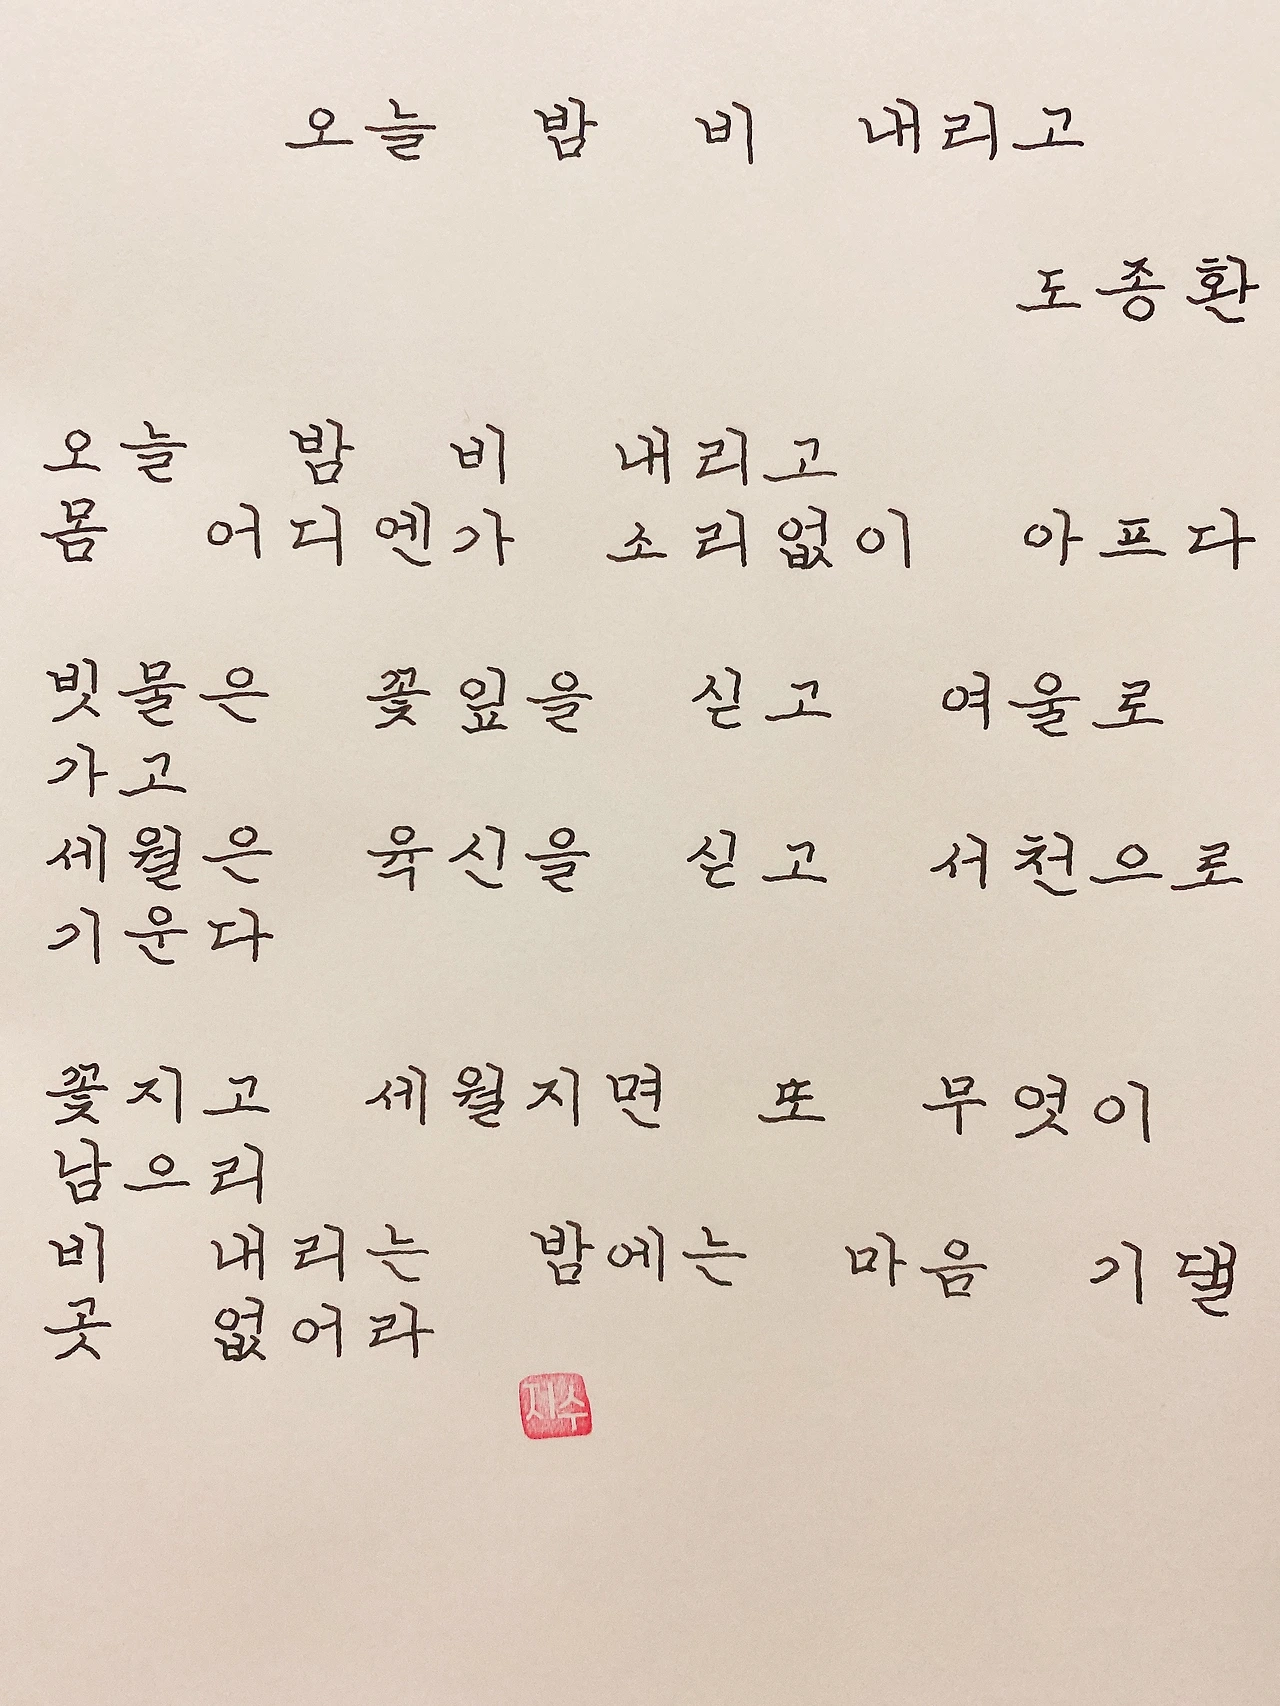 오늘 밤 비 내리고
도종환
오늘 밤 비 내리고
몸 어디엔가 소리없이 아프다
빗물은 꽃잎을 싣고 여울로
가고
세월은 육신을 싣고 서천으로
기운다
꽃지고 세월지면 또 무엇이
남으리
비 내리는 밤에는 마음 기댈
곳 없어라
지수